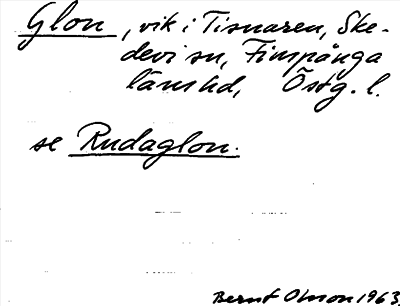 Glon, vik i Tisnaren, Ske-
devi sn, Finspånga
länshd, Östg. l.
se Rudaglon.
Bernt Olsson 1963